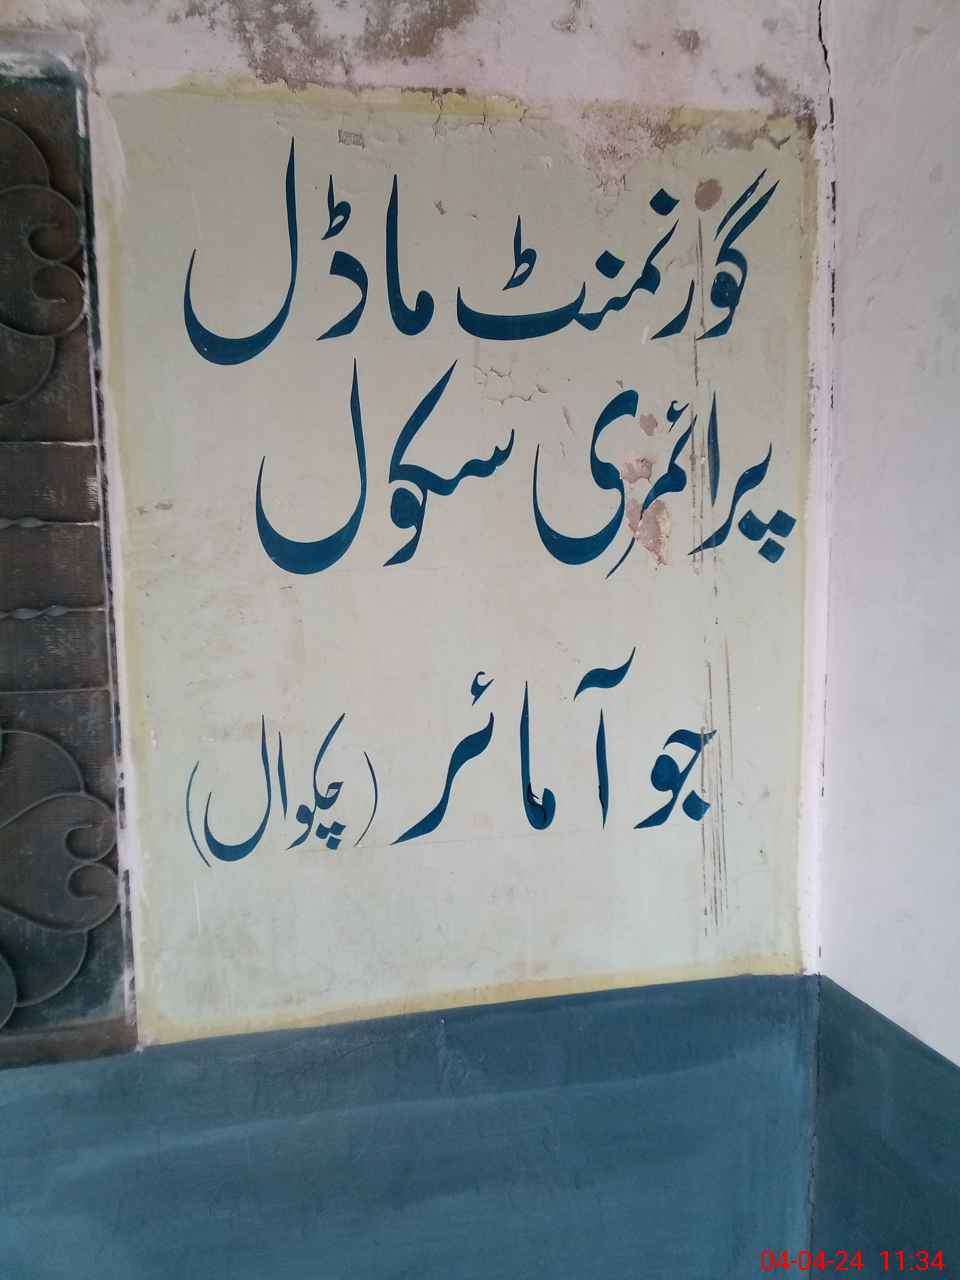 گورنمنٹ ماڈل
پرائمری سکول
جوآمائر (چکوال)
04-04-24 11:34